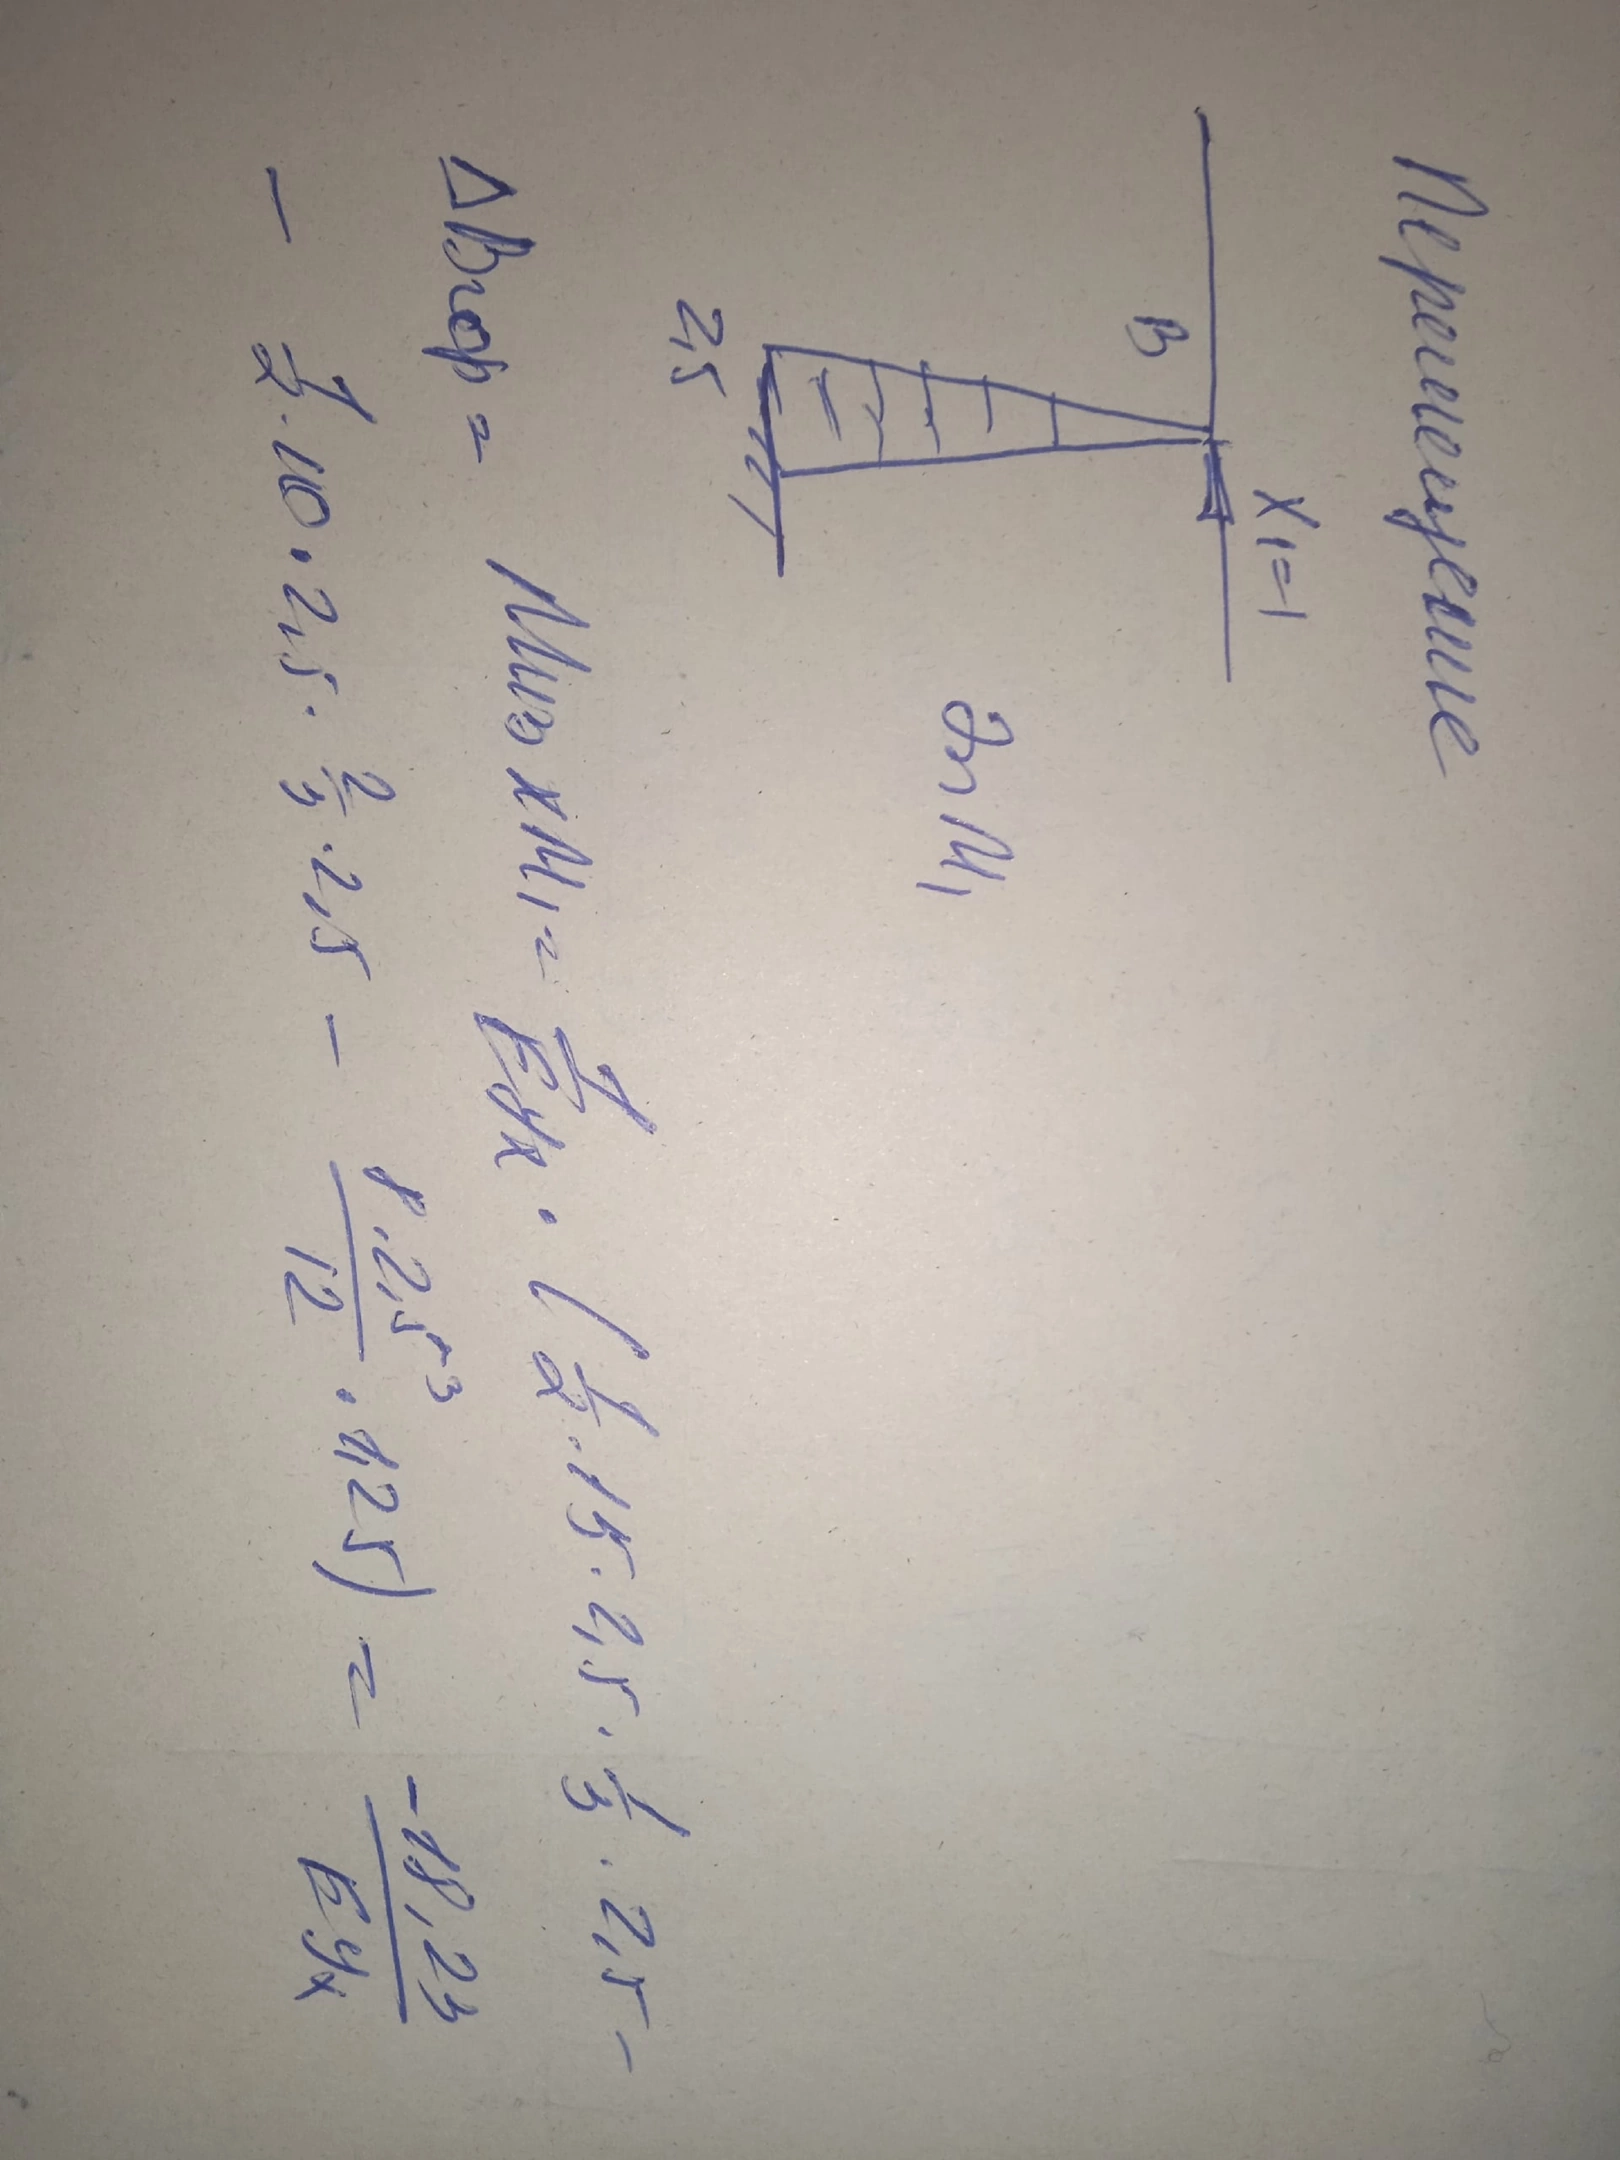 Перемещение
X₁=1
B
Эп M₁
2,5
ΔBгор = Mиз x M₁ = 1/EYx · (1/2 · 15 · 2,5 · 1/3 · 2,5 –
– 1/2 · 10 · 2,5 · 2/3 · 2,5 – 8·2,5³/12 · 1,25) = –18,23/EYx